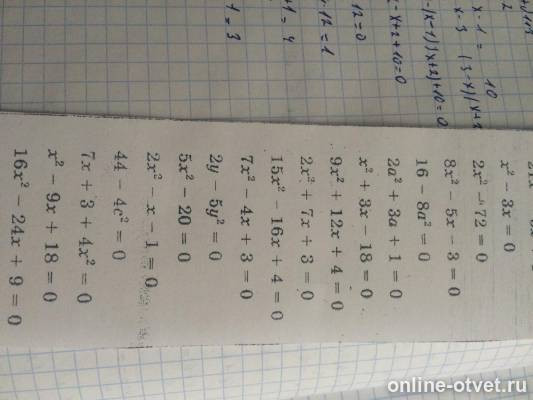 x² − 3x = 0
2x² − 72 = 0
8x² − 5x − 3 = 0
16 − 8a² = 0
2a² + 3a + 1 = 0
x² + 3x − 18 = 0
9x² + 12x + 4 = 0
2x² + 7x + 3 = 0
15x² − 16x + 4 = 0
7x² − 4x + 3 = 0
2y − 5y² = 0
5x² − 20 = 0
2x² − x − 1 = 0
44 − 4c² = 0
7x + 3 + 4x² = 0
x² − 9x + 18 = 0
16x² − 24x + 9 = 0
online-otvet.ru